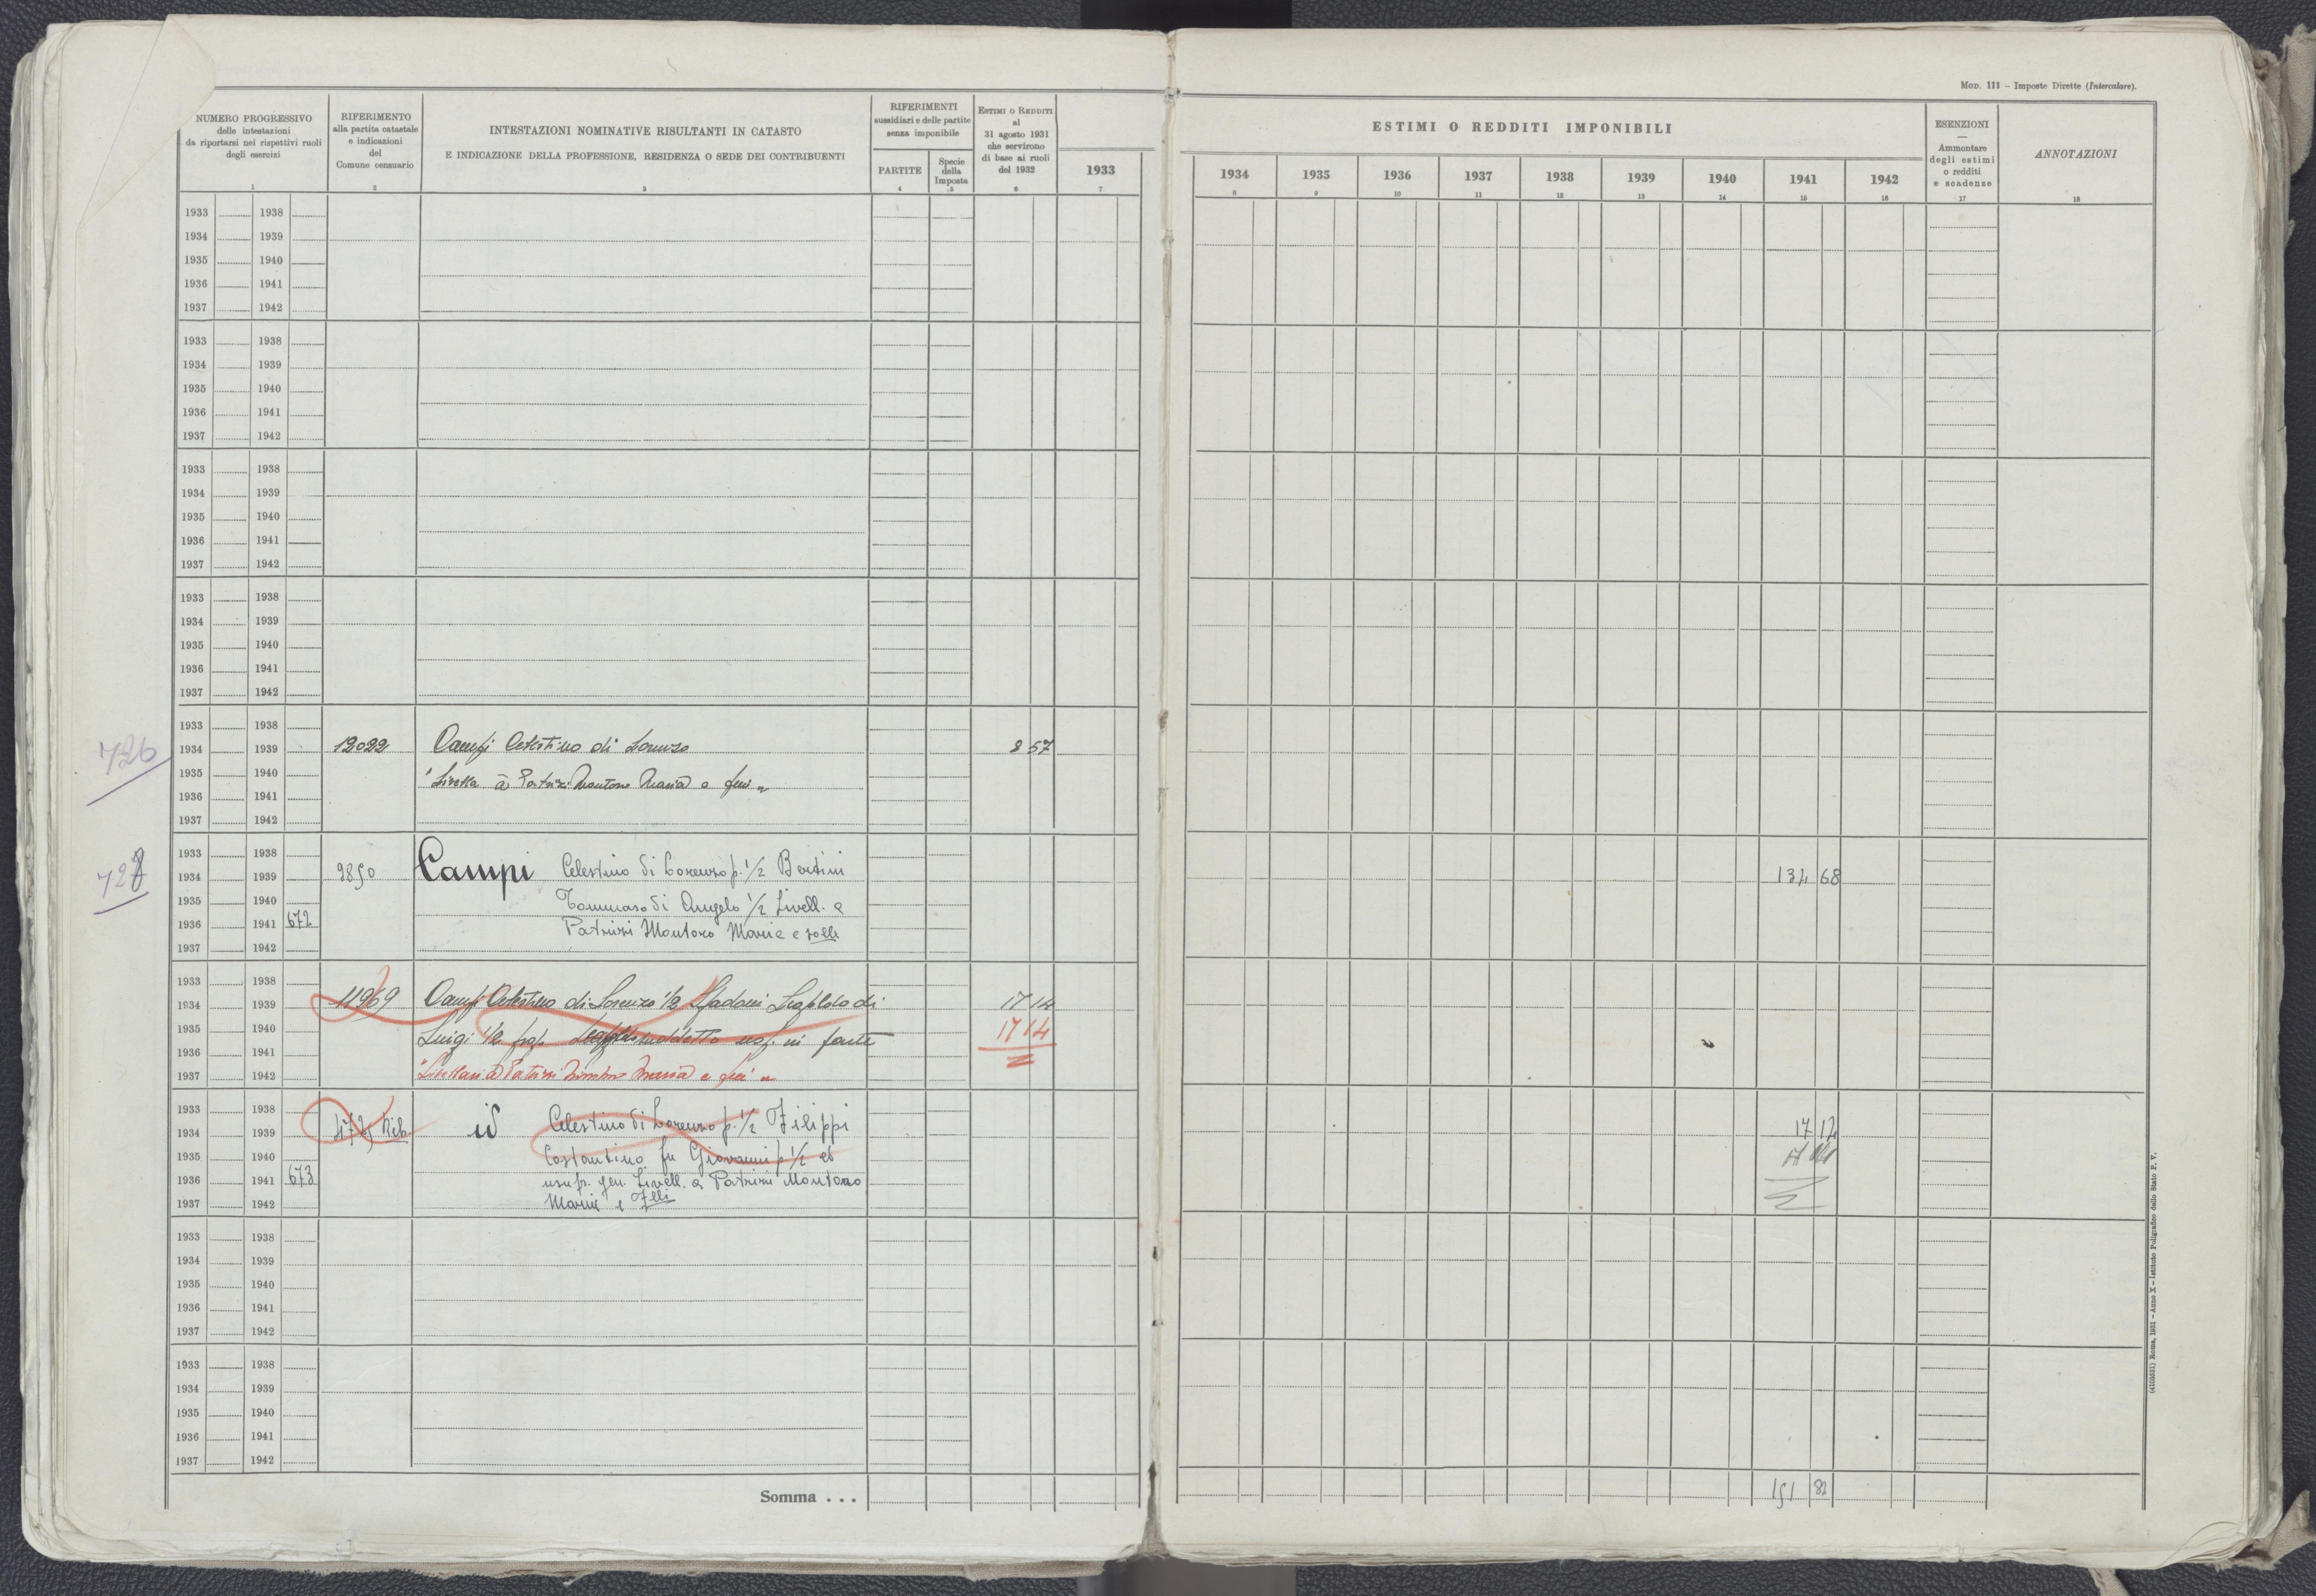 MOD. 111 – Imposte Dirette (Intercalare).
NUMERO PROGRESSIVO
delle intestazioni
da riportarsi nei rispettivi ruoli
degli esercizi
1
RIFERIMENTO
alla partita catastale
e indicazioni
del
Comune censuario
2
INTESTAZIONI NOMINATIVE RISULTANTI IN CATASTO
E INDICAZIONE DELLA PROFESSIONE, RESIDENZA O SEDE DEI CONTRIBUENTI
3
RIFERIMENTI
sussidiari e delle partite
senza imponibile
PARTITE
4
Specie
della
Imposta
5
ESTIMI O REDDITI
al
31 agosto 1931
che servirono
di base ai ruoli
del 1932
6
1933
7
ESTIMI O REDDITI IMPONIBILI
1934 1935 1936 1937 1938 1939 1940 1941 1942
8 9 10 11 12 13 14 15 16
ESENZIONI
—
Ammontare
degli estimi
o redditi
e scadenze
17
ANNOTAZIONI
18
1933 1938
1934 1939
1935 1940
1936 1941
1937 1942
1933 1938
1934 1939
1935 1940
1936 1941
1937 1942
1933 1938
1934 1939
1935 1940
1936 1941
1937 1942
1933 1938
1934 1939
1935 1940
1936 1941
1937 1942
726
1933 1938
1934 1939 12022 Campi Celestino di Lorenzo 8 57
1935 1940 Livella a Patrizi Montoro Maria e
1936 1941
1937 1942
727
1933 1938
1934 1939 9850 Campi Celestino di Lorenzo p. 1/2 Bertini 134 68
1935 1940 Tommaso di Angelo 1/2 Livell. a
1936 1941 672 Patrizi Montoro Maria e
1937 1942
1933 1938
1934 1939 11969 Campi Celestino di Lorenzo 1/2 Leopoldo di 17 14
1935 1940 Luigi 1/2 prop. usf. in parte 17 14
1936 1941
1937 1942 Livellari a Patrizi Maria e
1933 1938
1934 1939 id Celestino di Lorenzo p. 1/2 Filippi 17 14
1935 1940 Costantino fu Giovanni p 1/2 ed
1936 1941 673 usufr. gen. Livell. a Patrizi Montoro
1937 1942 Maria e Flli
1933 1938
1934 1939
1935 1940
1936 1941
1937 1942
1933 1938
1934 1939
1935 1940
1936 1941
1937 1942
Somma . . . 151 82
(4105251) Roma, 1931 – Anno X – Istituto Poligrafico dello Stato P. V.